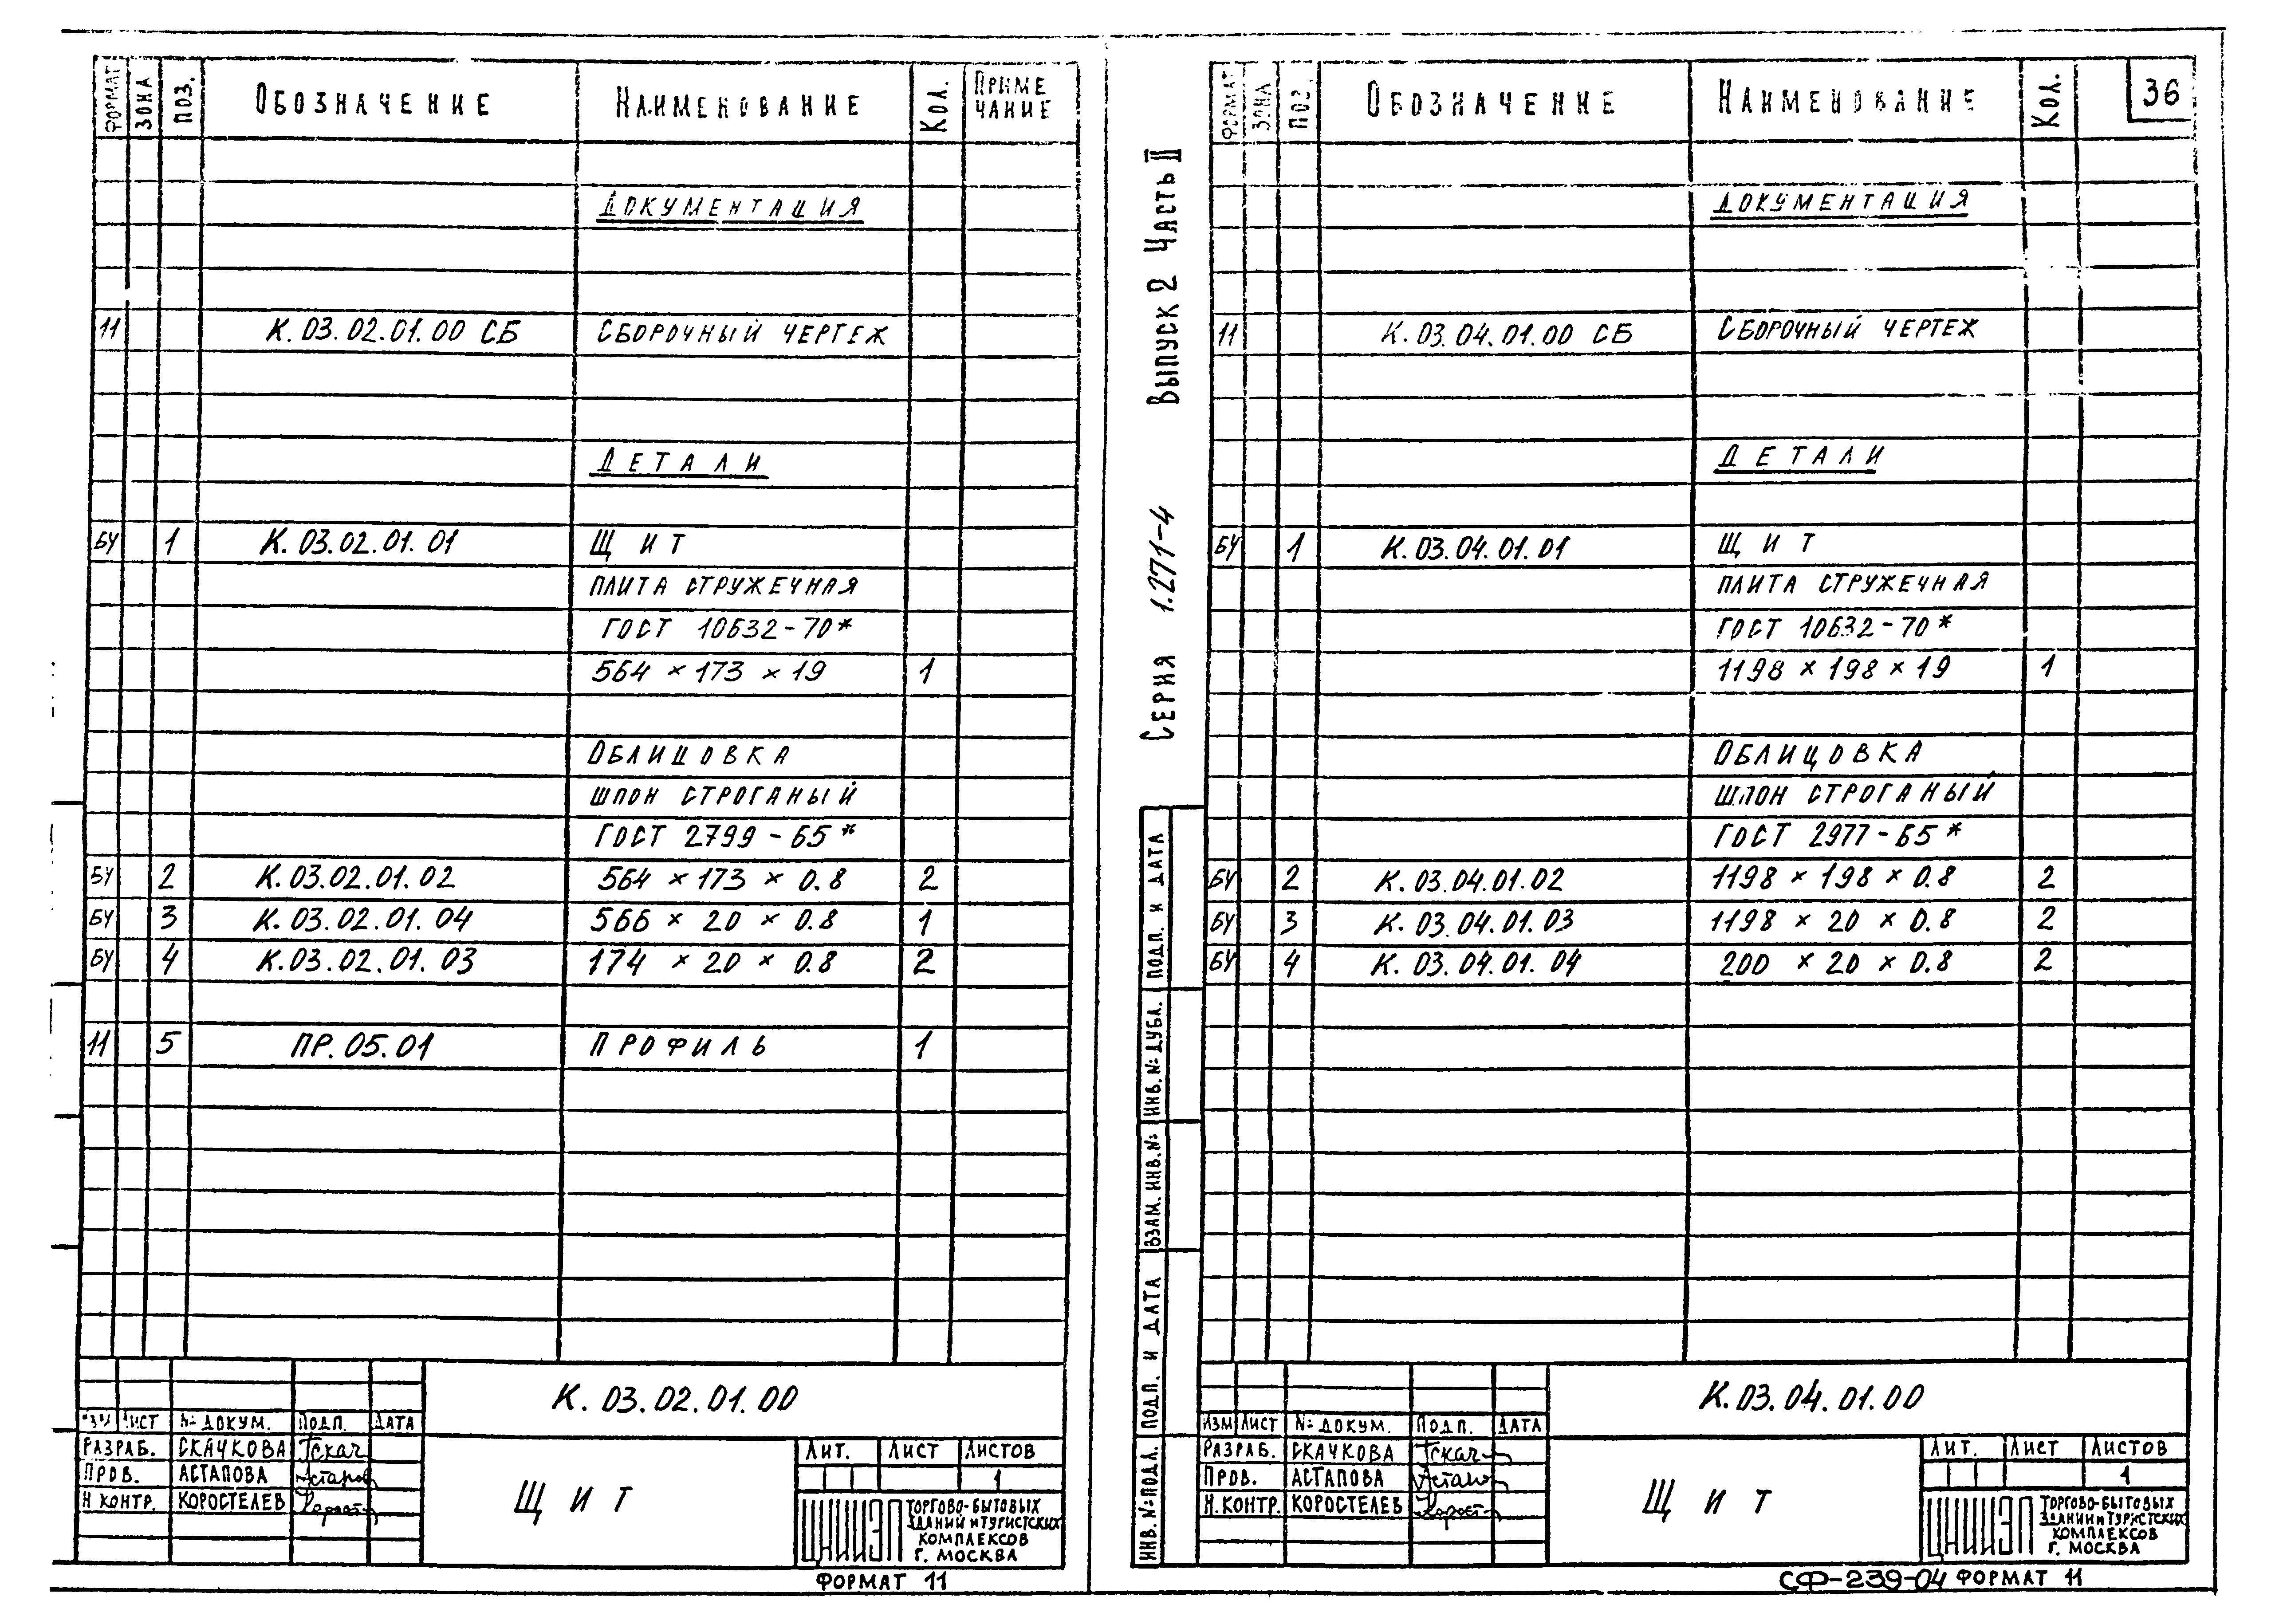 ФОРМАТ ЗОНА ПОЗ. ОБОЗНАЧЕНИЕ НАИМЕНОВАНИЕ КОЛ. ПРИМЕ
ЧАНИЕ
ДОКУМЕНТАЦИЯ
11 К.03.02.01.00 СБ СБОРОЧНЫЙ ЧЕРТЕЖ
ДЕТАЛИ
БЧ 1 К.03.02.01.01 ЩИТ
ПЛИТА СТРУЖЕЧНАЯ
ГОСТ 10632-70*
564 × 173 × 19 1
ОБЛИЦОВКА
ШПОН СТРОГАНЫЙ
ГОСТ 2799-65*
БЧ 2 К.03.02.01.02 564 × 173 × 0.8 2
БЧ 3 К.03.02.01.04 566 × 20 × 0.8 1
БЧ 4 К.03.02.01.03 174 × 20 × 0.8 2
11 5 ПР.05.01 ПРОФИЛЬ 1
К.03.02.01.00
ИЗМ ЛИСТ № ДОКУМ. ПОДП. ДАТА
РАЗРАБ. СКАЧКОВА
ПРОВ. АСТАПОВА
Н КОНТР. КОРОСТЕЛЕВ
ЩИТ
ЛИТ. ЛИСТ ЛИСТОВ
1
ЦНИИЭП ТОРГОВО-БЫТОВЫХ
ЗДАНИЙ И ТУРИСТСКИХ
КОМПЛЕКСОВ
Г. МОСКВА
ФОРМАТ 11
СЕРИЯ 1.271-4 ВЫПУСК 2 ЧАСТЬ II
ФОРМАТ ЗОНА ПОЗ. ОБОЗНАЧЕНИЕ НАИМЕНОВАНИЕ КОЛ. 36
ДОКУМЕНТАЦИЯ
11 К.03.04.01.00 СБ СБОРОЧНЫЙ ЧЕРТЕЖ
ДЕТАЛИ
БЧ 1 К.03.04.01.01 ЩИТ
ПЛИТА СТРУЖЕЧНАЯ
ГОСТ 10632-70*
1198 × 198 × 19 1
ОБЛИЦОВКА
ШПОН СТРОГАНЫЙ
ГОСТ 2977-65*
БЧ 2 К.03.04.01.02 1198 × 198 × 0.8 2
БЧ 3 К.03.04.01.03 1198 × 20 × 0.8 2
БЧ 4 К.03.04.01.04 200 × 20 × 0.8 2
ИНВ.№ ПОДЛ. ПОДП. И ДАТА ВЗАМ. ИНВ.№ ИНВ.№ ДУБЛ. ПОДП. И ДАТА
К.03.04.01.00
ИЗМ ЛИСТ № ДОКУМ. ПОДП. ДАТА
РАЗРАБ. СКАЧКОВА
ПРОВ. АСТАПОВА
Н.КОНТР. КОРОСТЕЛЕВ
ЩИТ
ЛИТ. ЛИСТ ЛИСТОВ
1
ЦНИИЭП ТОРГОВО-БЫТОВЫХ
ЗДАНИЙ И ТУРИСТСКИХ
КОМПЛЕКСОВ
Г. МОСКВА
СФ-239-04 ФОРМАТ 11